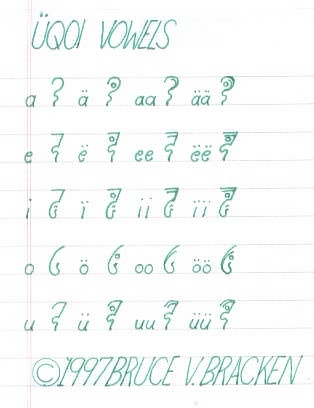 ÜQOI VOWELS
a ä aa ää
e ë ee ëë
i ï ii ïï
o ö oo öö
u ü uu üü
©1997 BRUCE V. BRACKEN